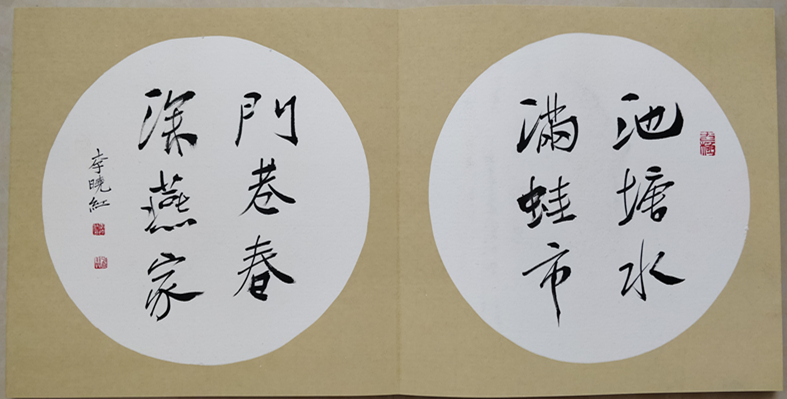 池塘水
滿蛙市
門巷春
深燕家
李曉紅